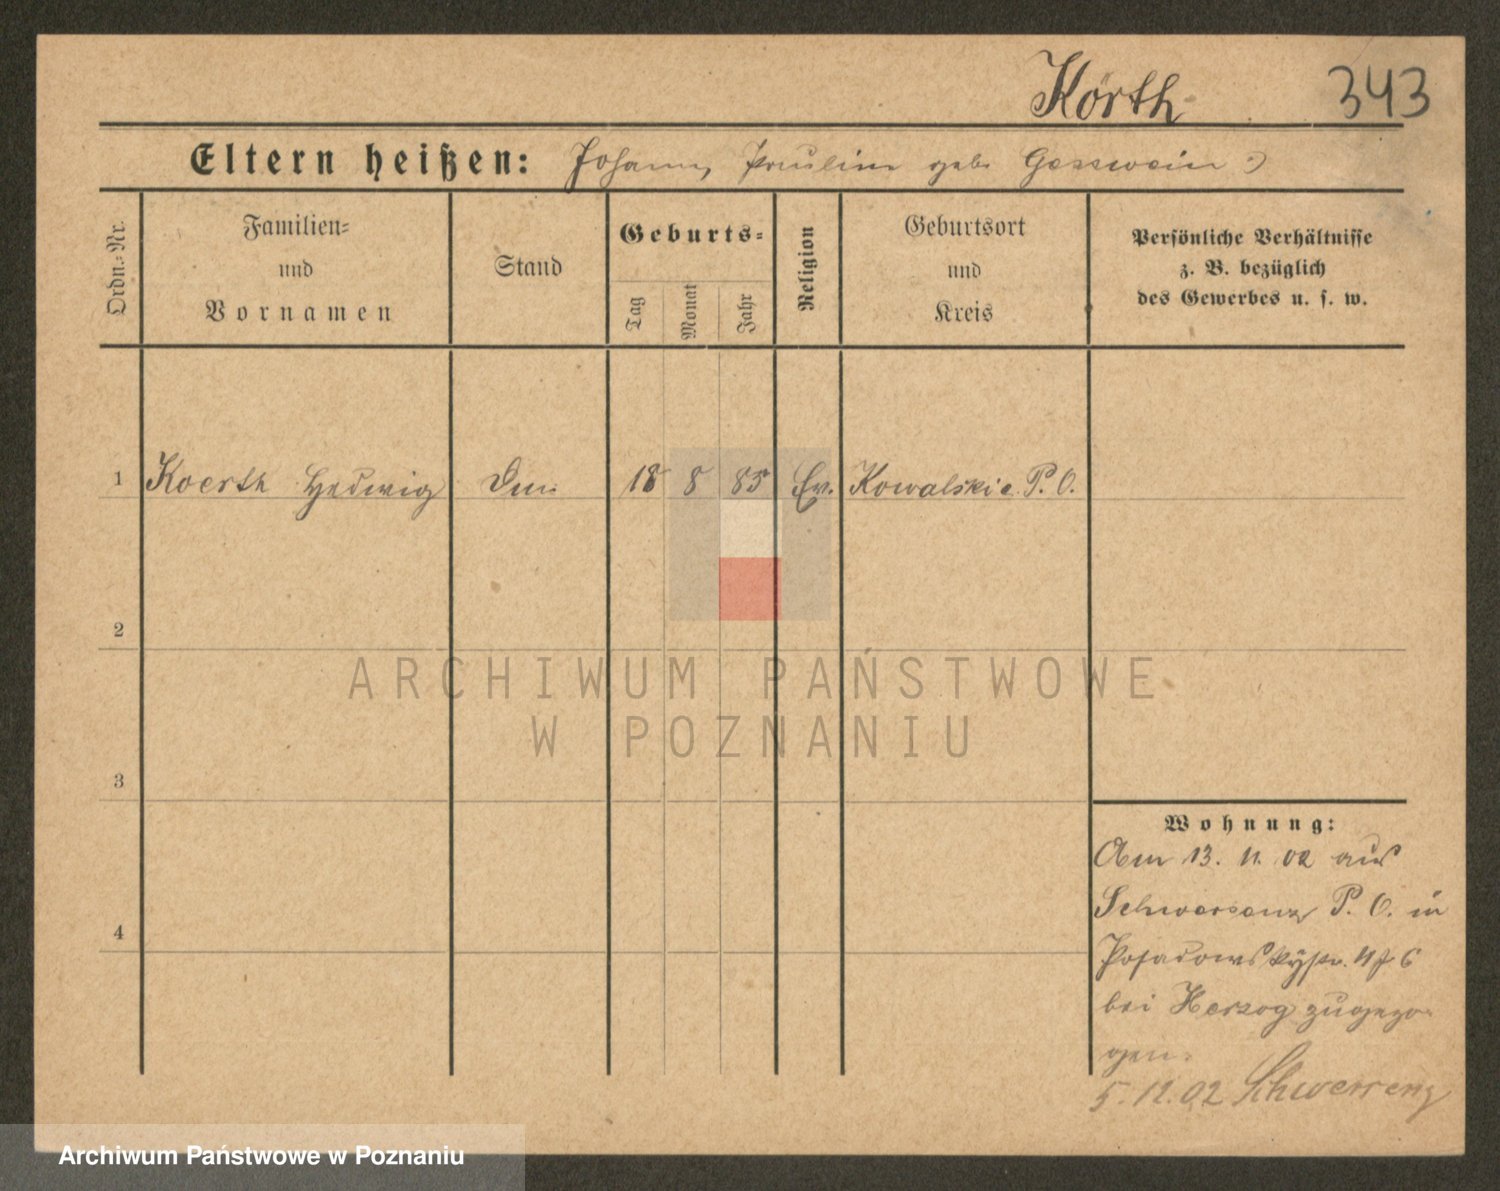 Körth 343
Eltern heißen: Johann, Pauline geb. Gesswein :)
Ordn.-Nr.
Familien-
und
Vornamen
Stand
Geburts-
Tag
Monat
Jahr
Religion
Geburtsort
und
Kreis
Persönliche Verhältnisse
z. B. bezüglich
des Gewerbes u. s. w.
1 Koerth Hedwig 18 8 85 Ev. Kowalskie P. O.
2
ARCHIWUM PAŃSTWOWE
W POZNANIU
3
Wohnung:
Am 13. 11. 02 aus
Schwersenz P. O. in
Posadowskystr. 6
bei Herzog zugezo-
gen.
4
5. 12. 02 Schwersenz
Archiwum Państwowe w Poznaniu